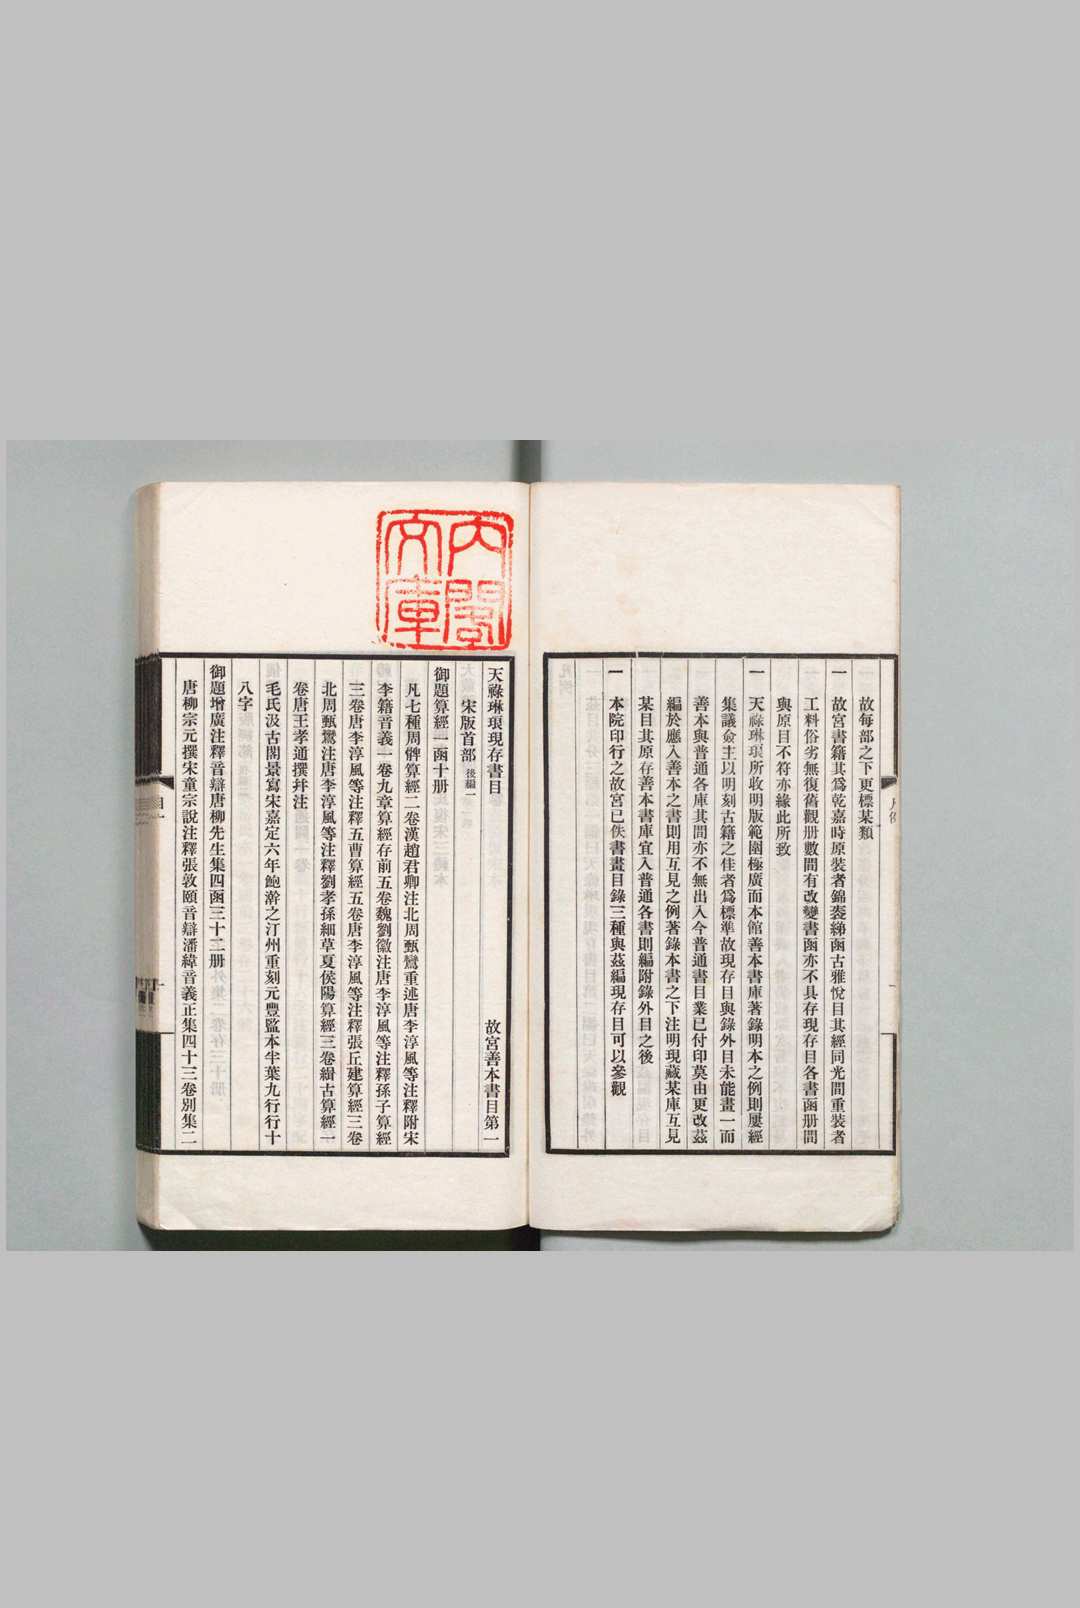 故每部之下更標某類
一 故宮書籍其爲乾嘉時原裝者錦裘綈函古雅悅目其經同光間重裝者
工料俗劣無復舊觀册數間有改變書函亦不具存現存目各書函册間
與原目不符亦緣此所致
一 天祿琳琅所收明版範圍極廣而本館善本書庫著錄明本之例則屢經
集議僉主以明刻古籍之佳者爲標準故現存目與錄外目未能畫一而
善本與普通各庫其間亦不無出入今普通書目業已付印莫由更改茲
編於應入善本之書則用互見之例著錄本書之下注明現藏某庫互見
某目其原存善本書庫宜入普通各書則編附錄外目之後
一 本院印行之故宮已佚書畫目錄三種與茲編現存目可以參觀
內閣
文庫
天祿琳琅現存書目 故宮善本書目第一
宋版首部 後編一
御題算經一函十册
凡七種周髀算經二卷漢趙君卿注北周甄鸞重述唐李淳風等注釋附宋
李籍音義一卷九章算經存前五卷魏劉徽注唐李淳風等注釋孫子算經
三卷唐李淳風等注釋五曹算經五卷唐李淳風等注釋張丘建算經三卷
北周甄鸞注唐李淳風等注釋劉孝孫細草夏侯陽算經三卷緝古算經一
卷唐王孝通撰幷注
毛氏汲古閣景寫宋嘉定六年鮑澣之汀州重刻元豐監本半葉九行行十
八字
御題增廣注釋音辯唐柳先生集四函三十二册
唐柳宗元撰宋童宗說注釋張敦頤音辯潘緯音義正集四十三卷別集二